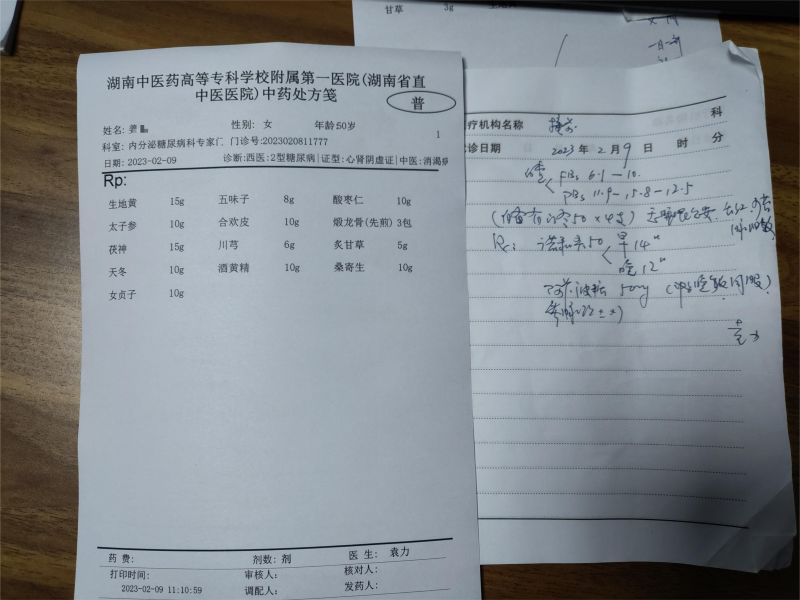 湖南中医药高等专科学校附属第一医院(湖南省直
中医医院)中药处方笺
普
姓名: 龚 性别: 女 年龄:50岁
1
科室: 内分泌糖尿病科专家门 门诊号:2023020811777
日期: 2023-02-09 诊断:西医:2型糖尿病|证型:心肾阴虚证|中医:消渴病
Rp:
生地黄 15g 五味子 8g 酸枣仁 10g
太子参 10g 合欢皮 10g 煅龙骨(先煎) 3包
茯神 15g 川芎 6g 炙甘草 5g
天冬 10g 酒黄精 10g 桑寄生 10g
女贞子 10g
药 费: 剂数: 剂 医 生: 袁力
打印时间: 审核人: 核对人:
2023-02-09 11:10:59 调配人: 发药人:
甘草 3g
一日一剂
科
疗机构名称
诊日期 2023 年 2 月 9 日 时 分
FBS 6.1-10.
PBS 11.9-15.8-12.5
50 x 4
R: 诺和灵50 早 14"
晚 12"
阿卡波糖 50mg